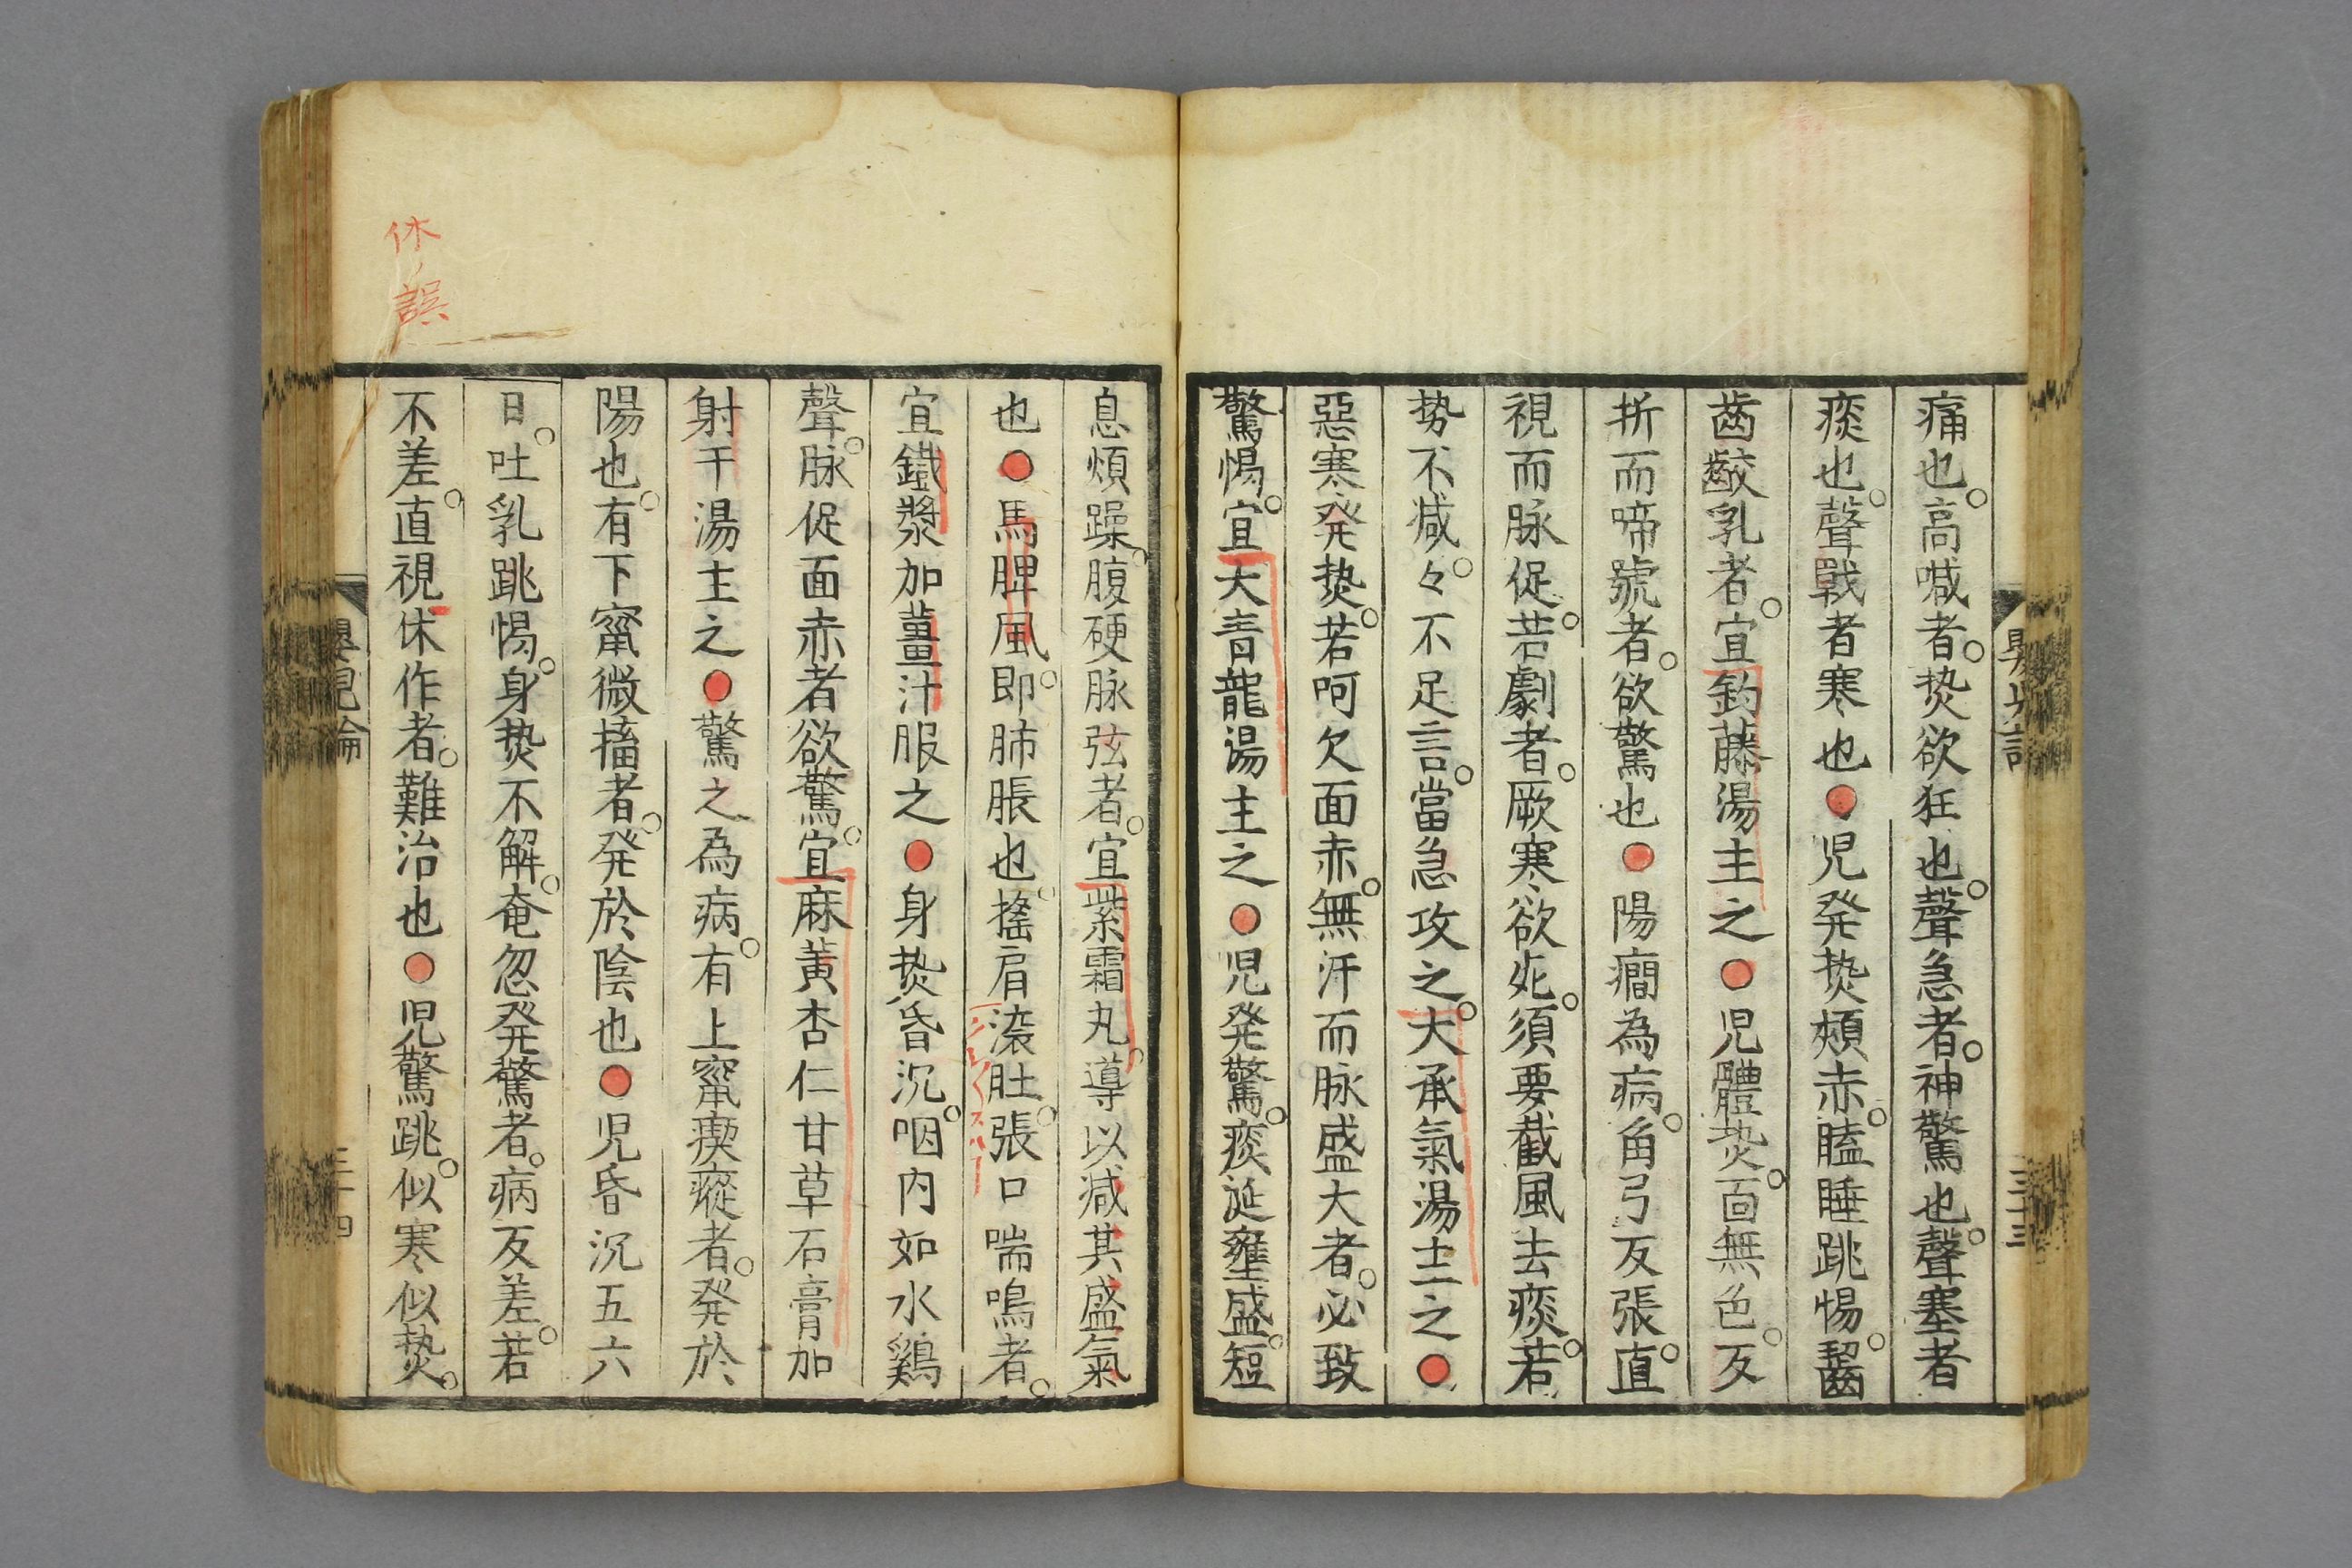 痛也。高喊者。热欲狂也。聲急者。神驚也。聲塞者
痰也。聲戰者寒也●児発热頰赤。瞌睡跳惕。齧
齒齩乳者。宜釣藤湯主之●児體热。面無色。反
折而啼號者。欲驚也●陽癇為病。角弓反張。直
視而脉促。若劇者。厥寒欲死。須要截風去痰。若
势不减々。不足言。當急攻之。大承氣湯主之●
惡寒発热。若呵欠面赤。無汗而脉盛大者。必致
驚惕。宜大青龍湯主之●児発驚。痰涎壅盛。短
息煩躁。腹硬脉弦者。宜紫霜丸。導以减其盛氣
也●馬脾風。即肺脹也。搖肩滾肚。張口喘鳴者。
宜鐵漿加薑汁服之●身热昏沉。咽内如水鷄
聲。脉促面赤者欲驚。宜麻黃杏仁甘草石膏加
射干湯主之●驚之為病。有上竄瘈瘲者。発於
陽也。有下竄微搐者。発於陰也●児昏沉五六
日。吐乳跳惕。身热不解。奄忽発驚者。病反差。若
不差。直視怵作者。難治也●児驚跳。似寒似热。
休ノ誤
三十三
嬰児論
三十四